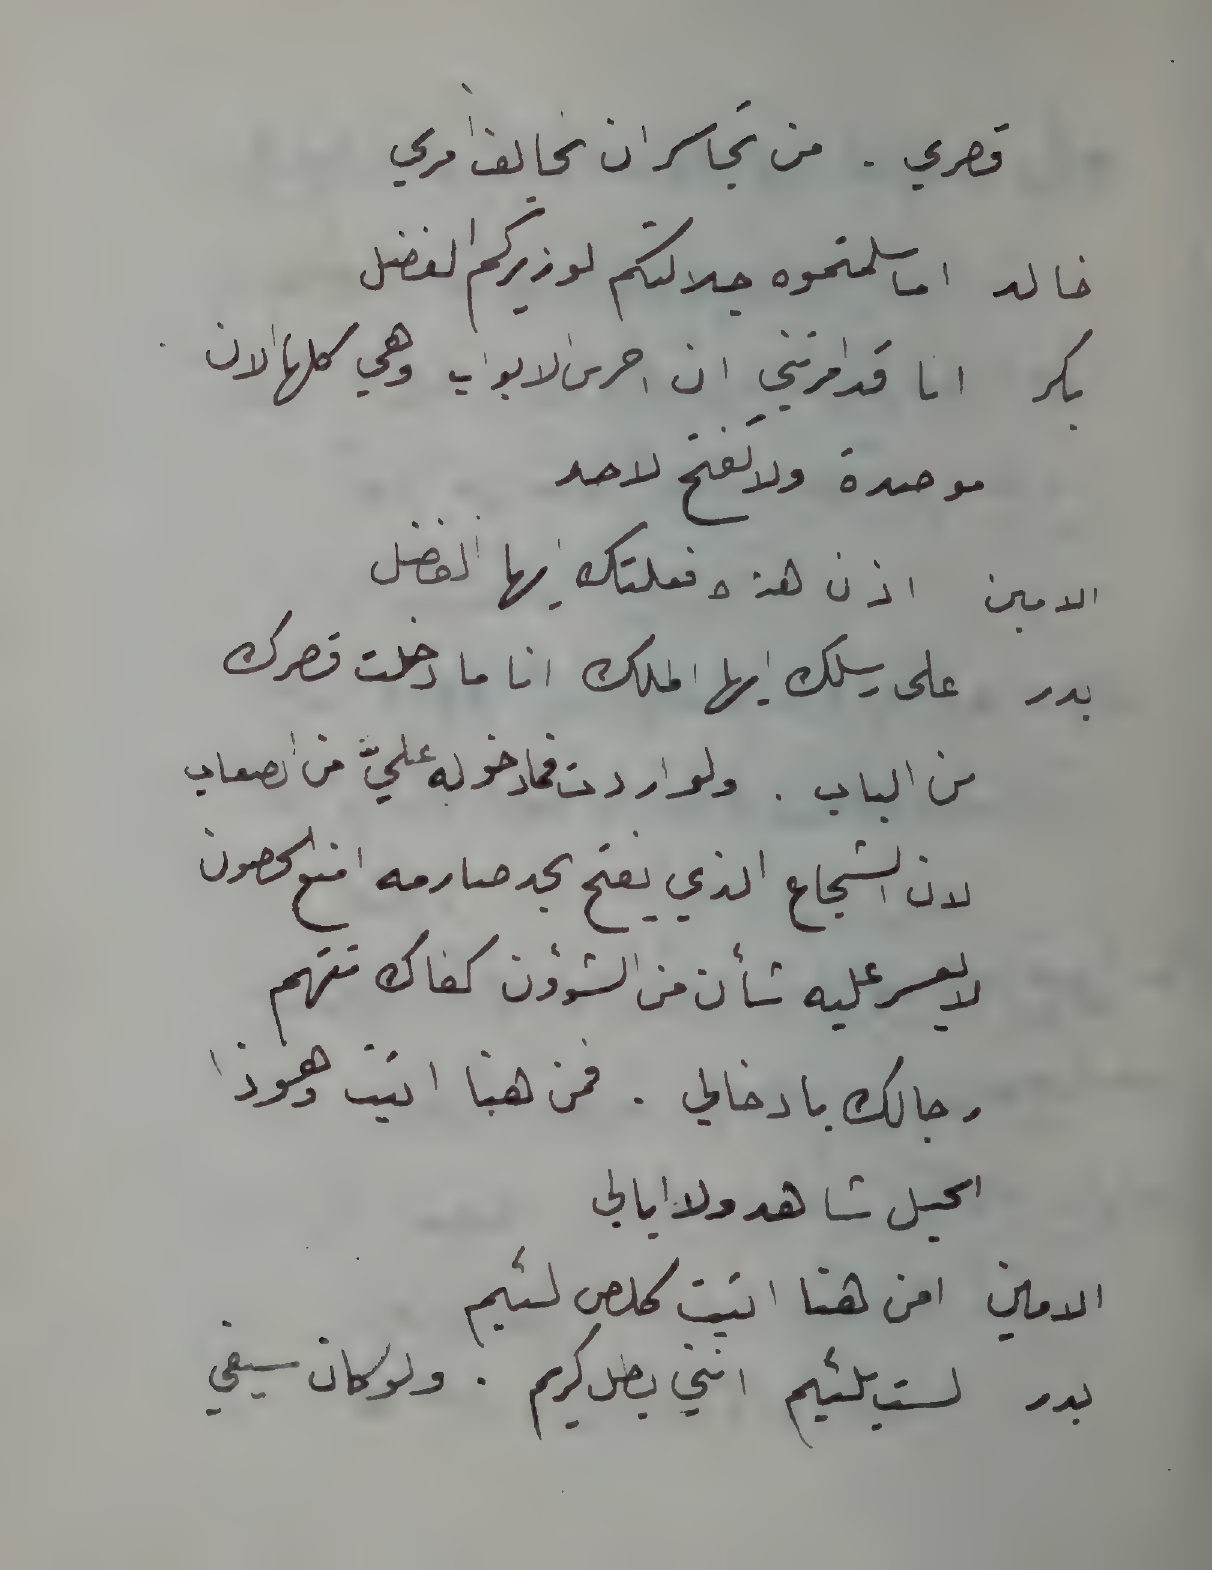 قصري . من تجاسر ان يخالف امري
خالد اما سلمتموه جلالتكم لوزيركم الفضل
بكر انا قد امرتني ان احرس الابواب وهي كلها الان
موصدة ولا تفتح لاحد
الامين اذن هذه فعلتك ايها الفضل
بدر على رسلك ايها الملك انا ما دخلت قصرك
من الباب . ولو اردت فما دخوله عليّ من الصعاب
لان الشجاع الذي يفتح بحد صارمه امنع الحصون
لا يعسر عليه شأن من الشوؤن كفاك تتهم
رجالك بادخالي . فمن هنا اتيت وهوذا
الحبل شاهد ولا ابالي
الامين امن هنا اتيت كلص لئيم
بدر لست بلئيم انني بطل كريم . ولو كان سيفي